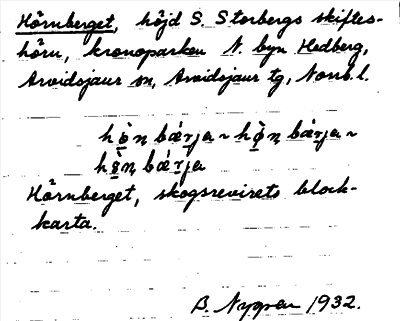 Hörnberget, höjd S. Storbergs skiftes-
hörn, kronoparken N. byn Hedberg,
Arvidsjaur sn, Arvidsjaur tg, Norrb. l.
Hörnberget, skogsrevirets block-
karta.
B. Nygren 1932.